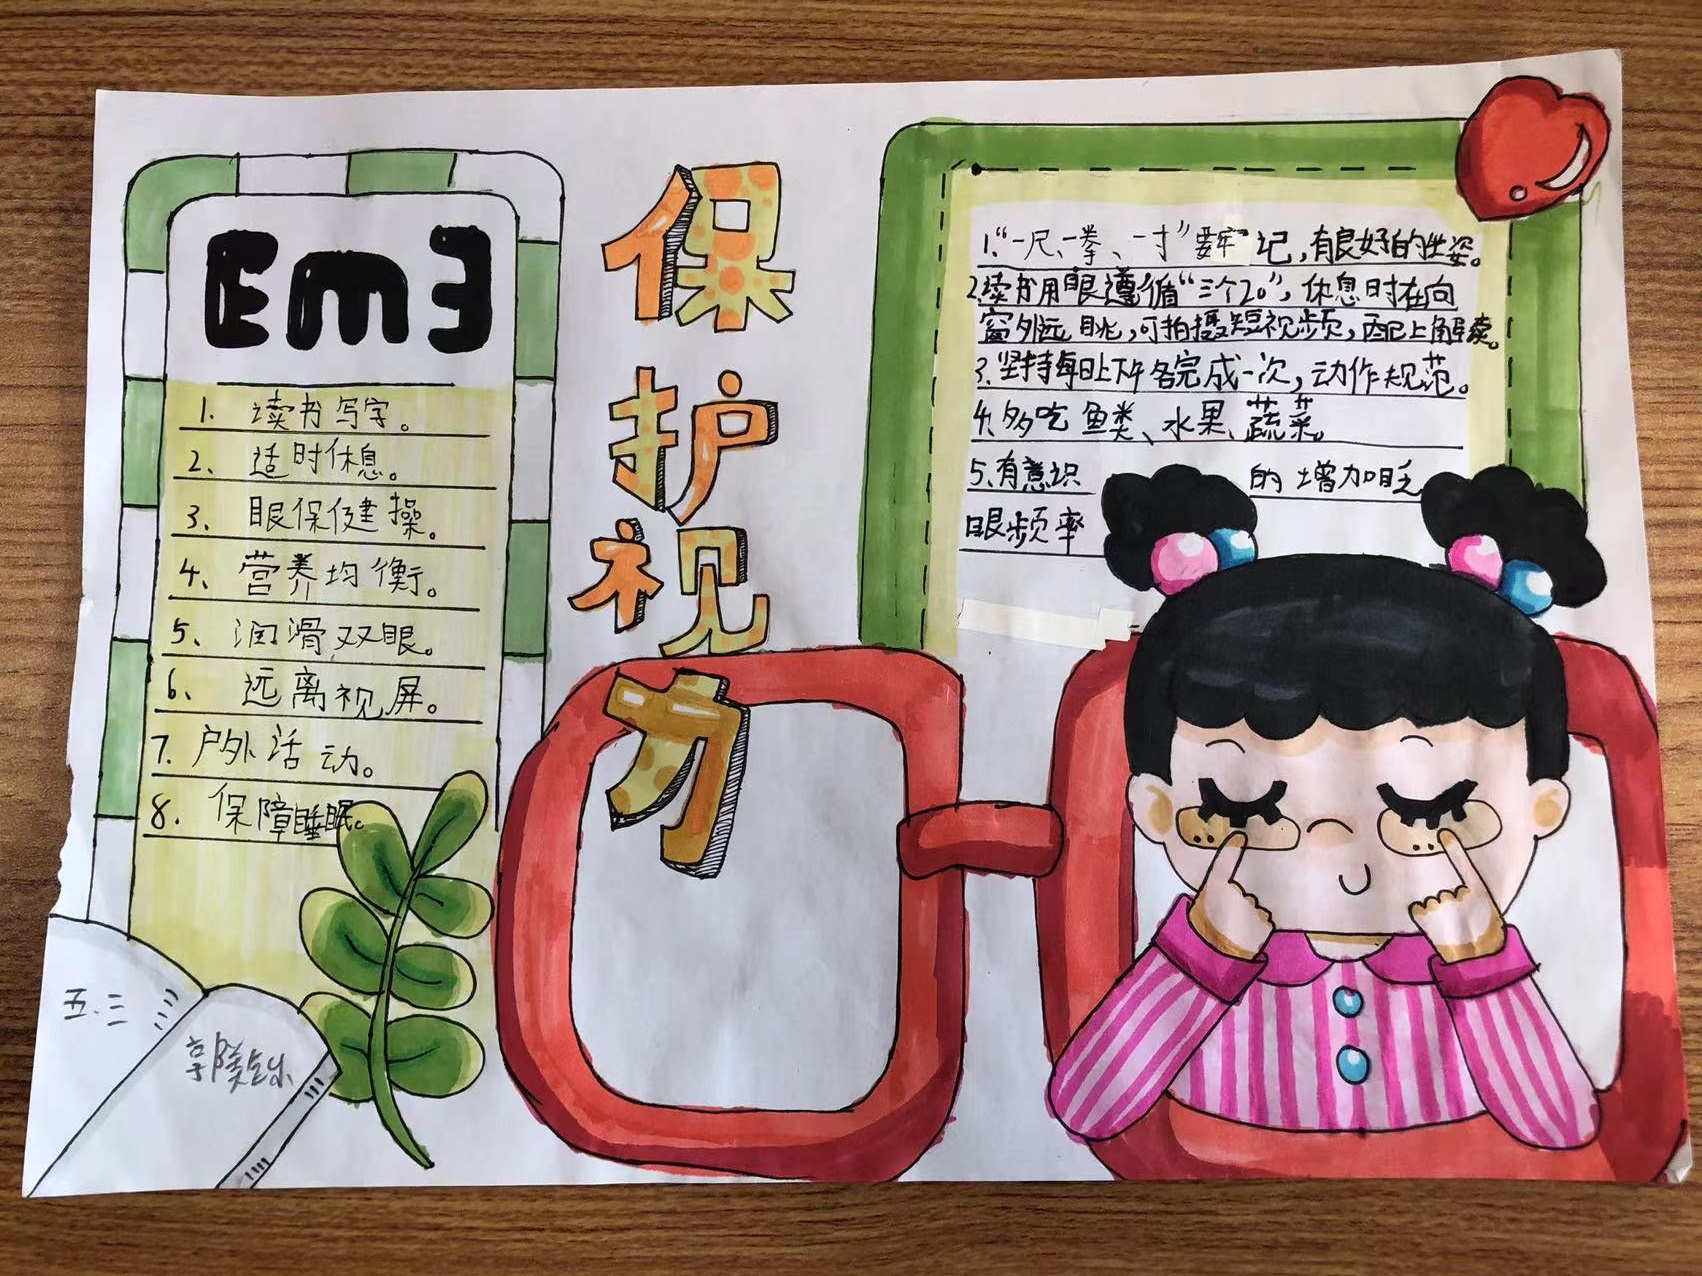 Em3
1. 读书写字。
2、适时休息。
3、眼保健操。
4、营养均衡。
5、润滑双眼。
6、远离视屏。
7. 户外活动。
8. 保障睡眠。
五.三
保护视力
1.“一尺、一拳、一寸”要牢记，有良好的坐姿。
2.读书用眼遵循“三个20”，休息时在向
窗外远眺，可拍摄短视频，配上解读。
3.坚持每日上下午各完成一次，动作规范。
4、多吃鱼类、水果、蔬菜。
5、有意识的增加眨
眼频率